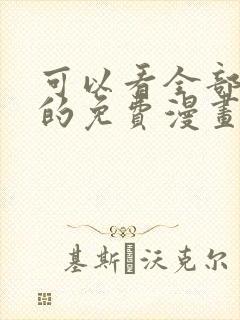 可以看全部
的免费漫畫
基斯·沃克尔